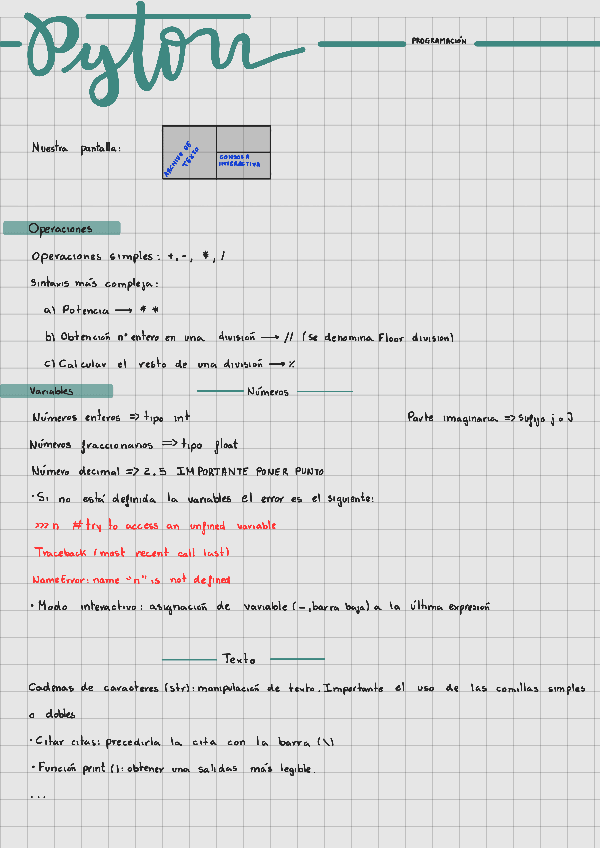 Pyton
PROGRAMACIÓN
Nuestra pantalla:
ARCHIVO DE TEXTO
CONSOLA INTERACTIVA
Operaciones
Operaciones simples: +, -, *, /
Sintaxis más compleja:
a) Potencia → **
b) Obtención nº entero en una división → // (se denomina Floor division)
c) Calcular el resto de una división → %
Variables
Números
Números enteros => tipo int
Parte imaginaria => sufijo j o J
Números fraccionarios => tipo float
Número decimal => 2.5 IMPORTANTE PONER PUNTO
· Si no está definida la variables el error es el siguiente:
>>> n # try to access an unfined variable
Traceback (most recent call last)
NameError: name "n" is not defined
· Modo interactivo: asignación de variable (_, barra baja) a la última expresión
Texto
Cadenas de caracteres (str): manipulación de texto. Importante el uso de las comillas simples
o dobles
· Citar citas: precedirla la cita con la barra (\)
· Función print (): obtener una salidas más legible.
...